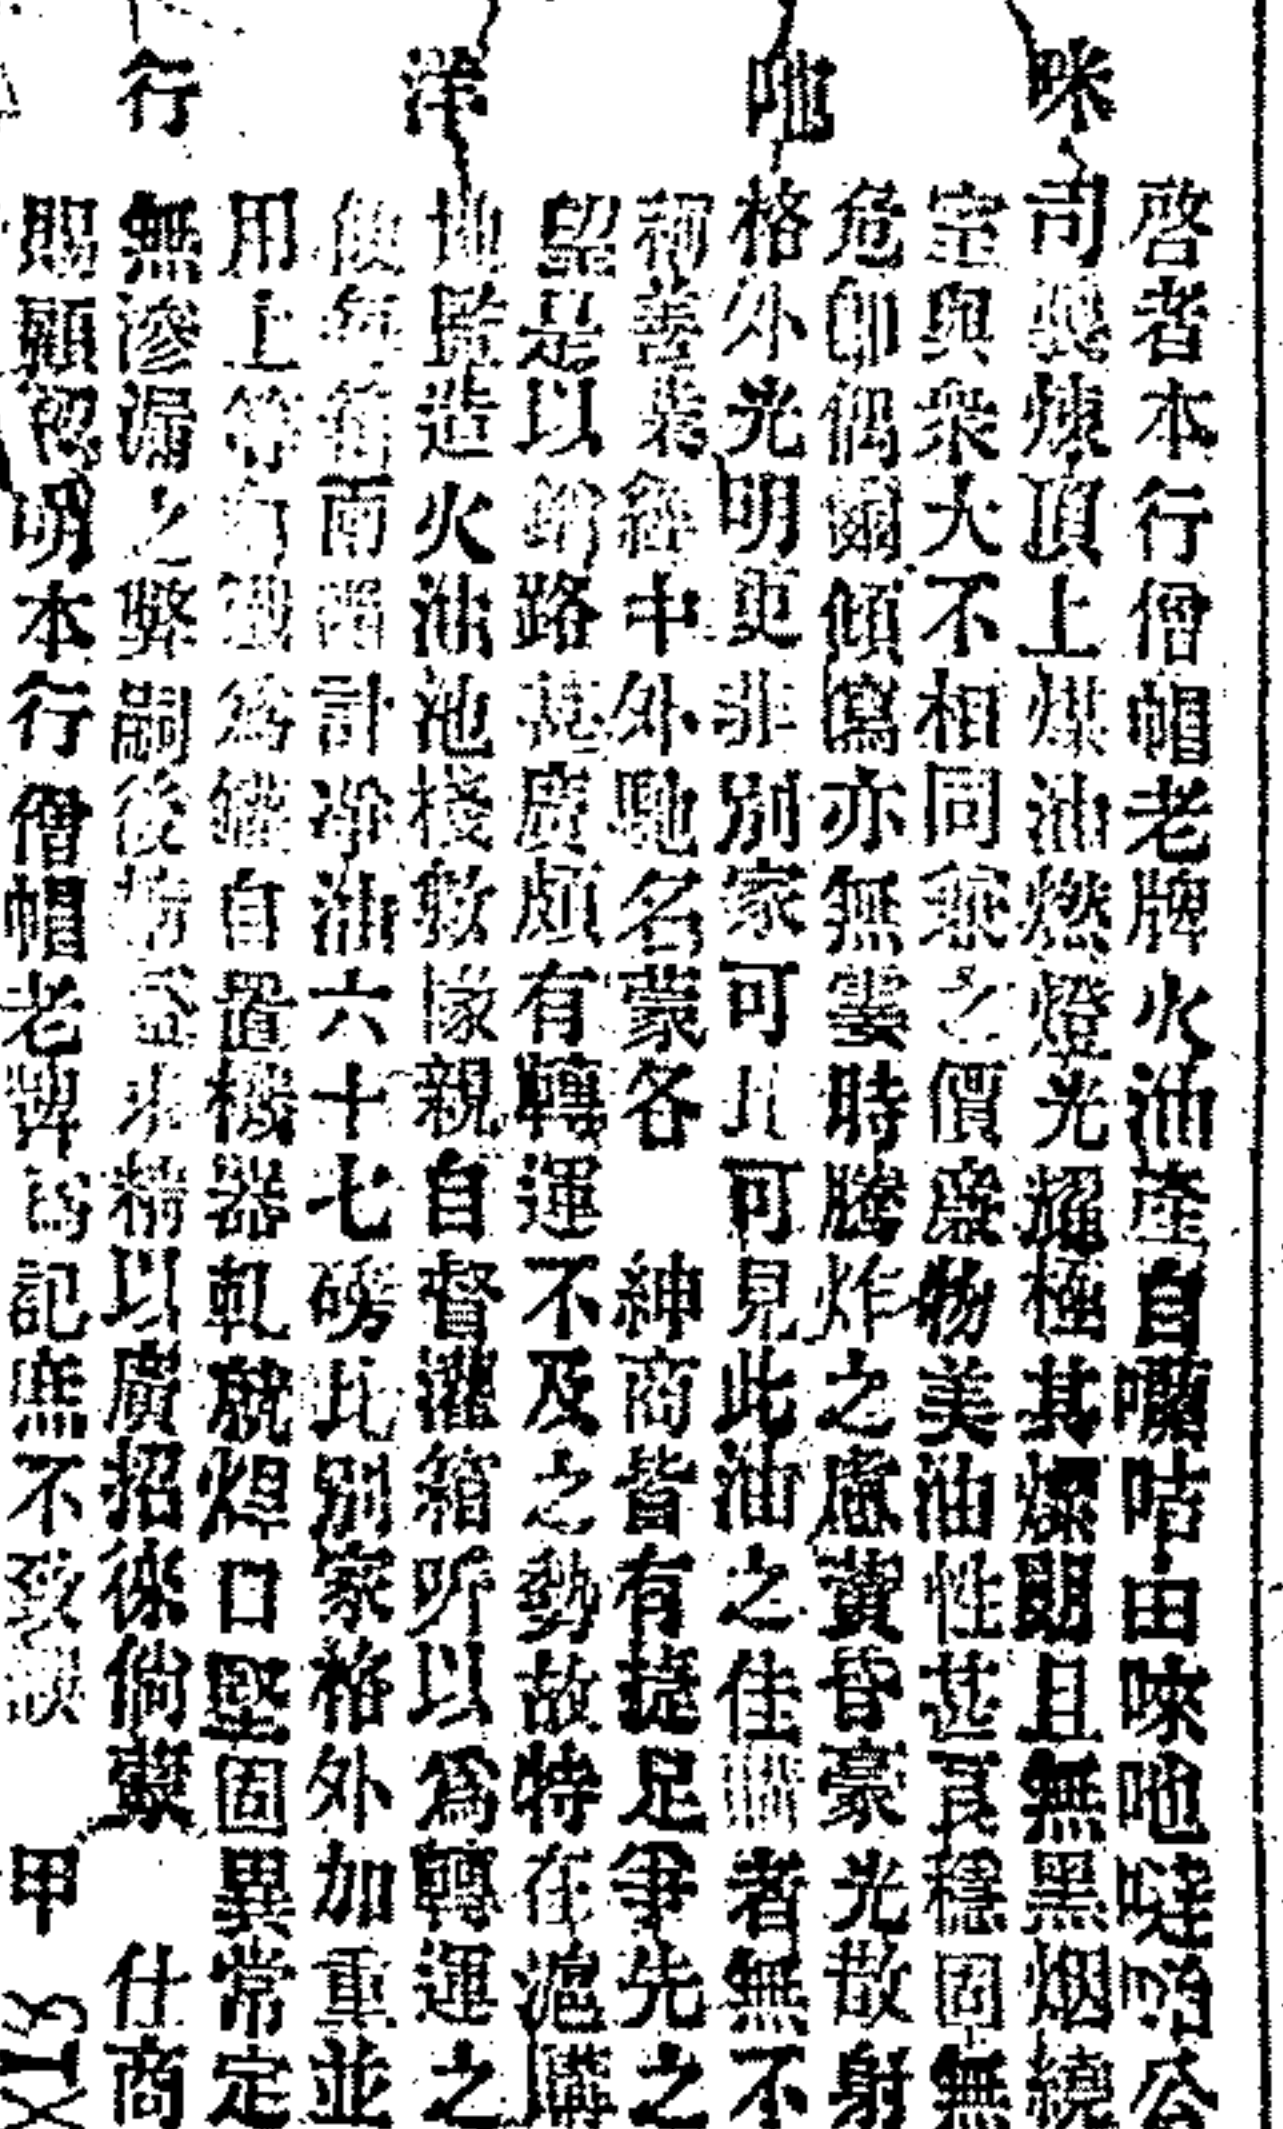 咪吔洋行
啓者本行僧帽老牌火油產自囒咭由唻吔哒咍公
司製煉頂上煤油燃燈光耀極其燦朗且無黑烟繞
室與衆大不相同乘之價廉物美油性甚良穩固無
危即偶爾傾寫亦無霎時騰炸之慮黃昏豪光散射
格外光明更非別家可比可見此油之佳 者無不
稱善業經中外馳名蒙各 紳商皆有捷足爭先之
望是以銷路甚廣頗有轉運不及之勢故特在滬購
地監造火油池棧數隊親自督灌箱听以爲轉運之
便每箱兩听計净油六十七磅比別家格外加重並
用上等 鐵爲罐自置機器軋就焊口堅固異常定
無滲漏之弊嗣後務益求精以廣招徠倘蒙 仕商
賜顧認明本行僧帽老牌爲記庶不致誤 甲